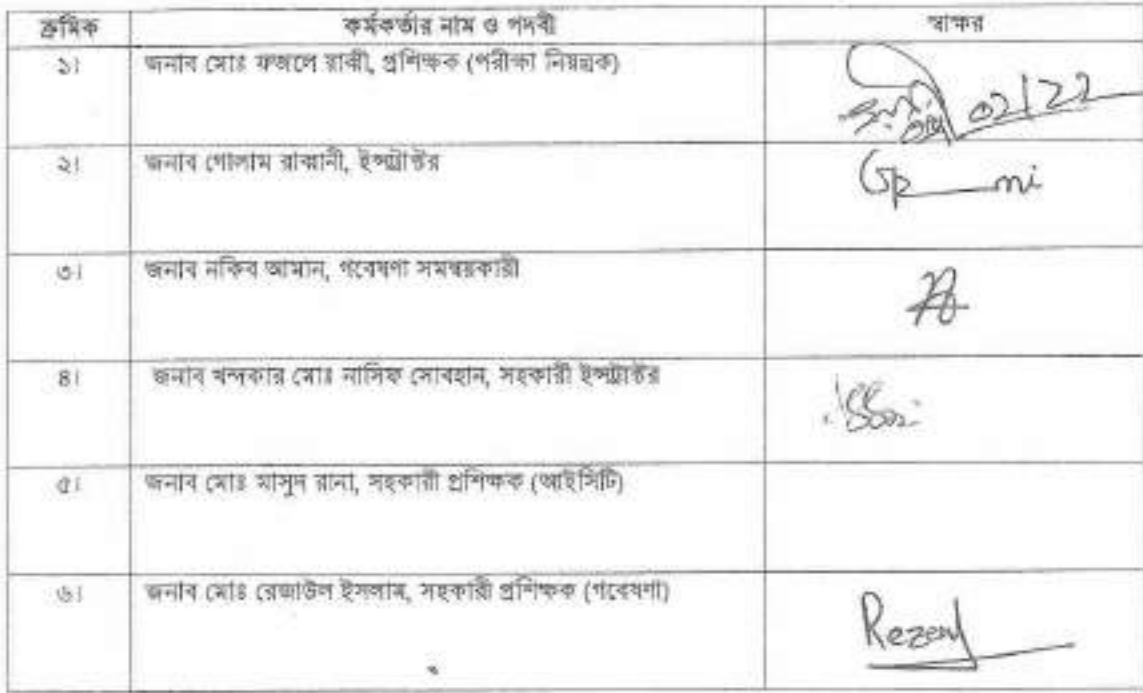 ক্রমিক কর্মকর্তার নাম ও পদবী স্বাক্ষর
১। জনাব মোঃ ফজলে রাব্বী, প্রশিক্ষক (পরীক্ষা নিয়ন্ত্রক) ০২/২২
২। জনাব গোলাম রাব্বানী, ইন্সট্রাক্টর
৩। জনাব নকিব আমান, গবেষণা সমন্বয়কারী
৪। জনাব খন্দকার মোঃ নাসিফ সোবহান, সহকারী ইন্সট্রাক্টর
৫। জনাব মোঃ মাসুদ রানা, সহকারী প্রশিক্ষক (আইসিটি)
৬। জনাব মোঃ রেজাউল ইসলাম, সহকারী প্রশিক্ষক (গবেষণা)